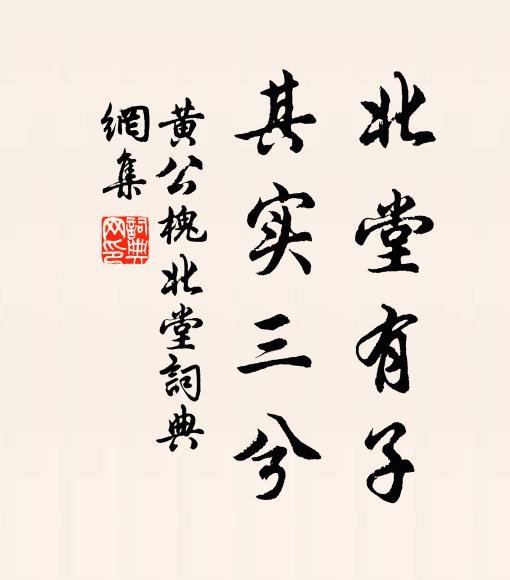 北堂有子
其实三兮
黄公槐北堂詞典
網集
詞典
网印